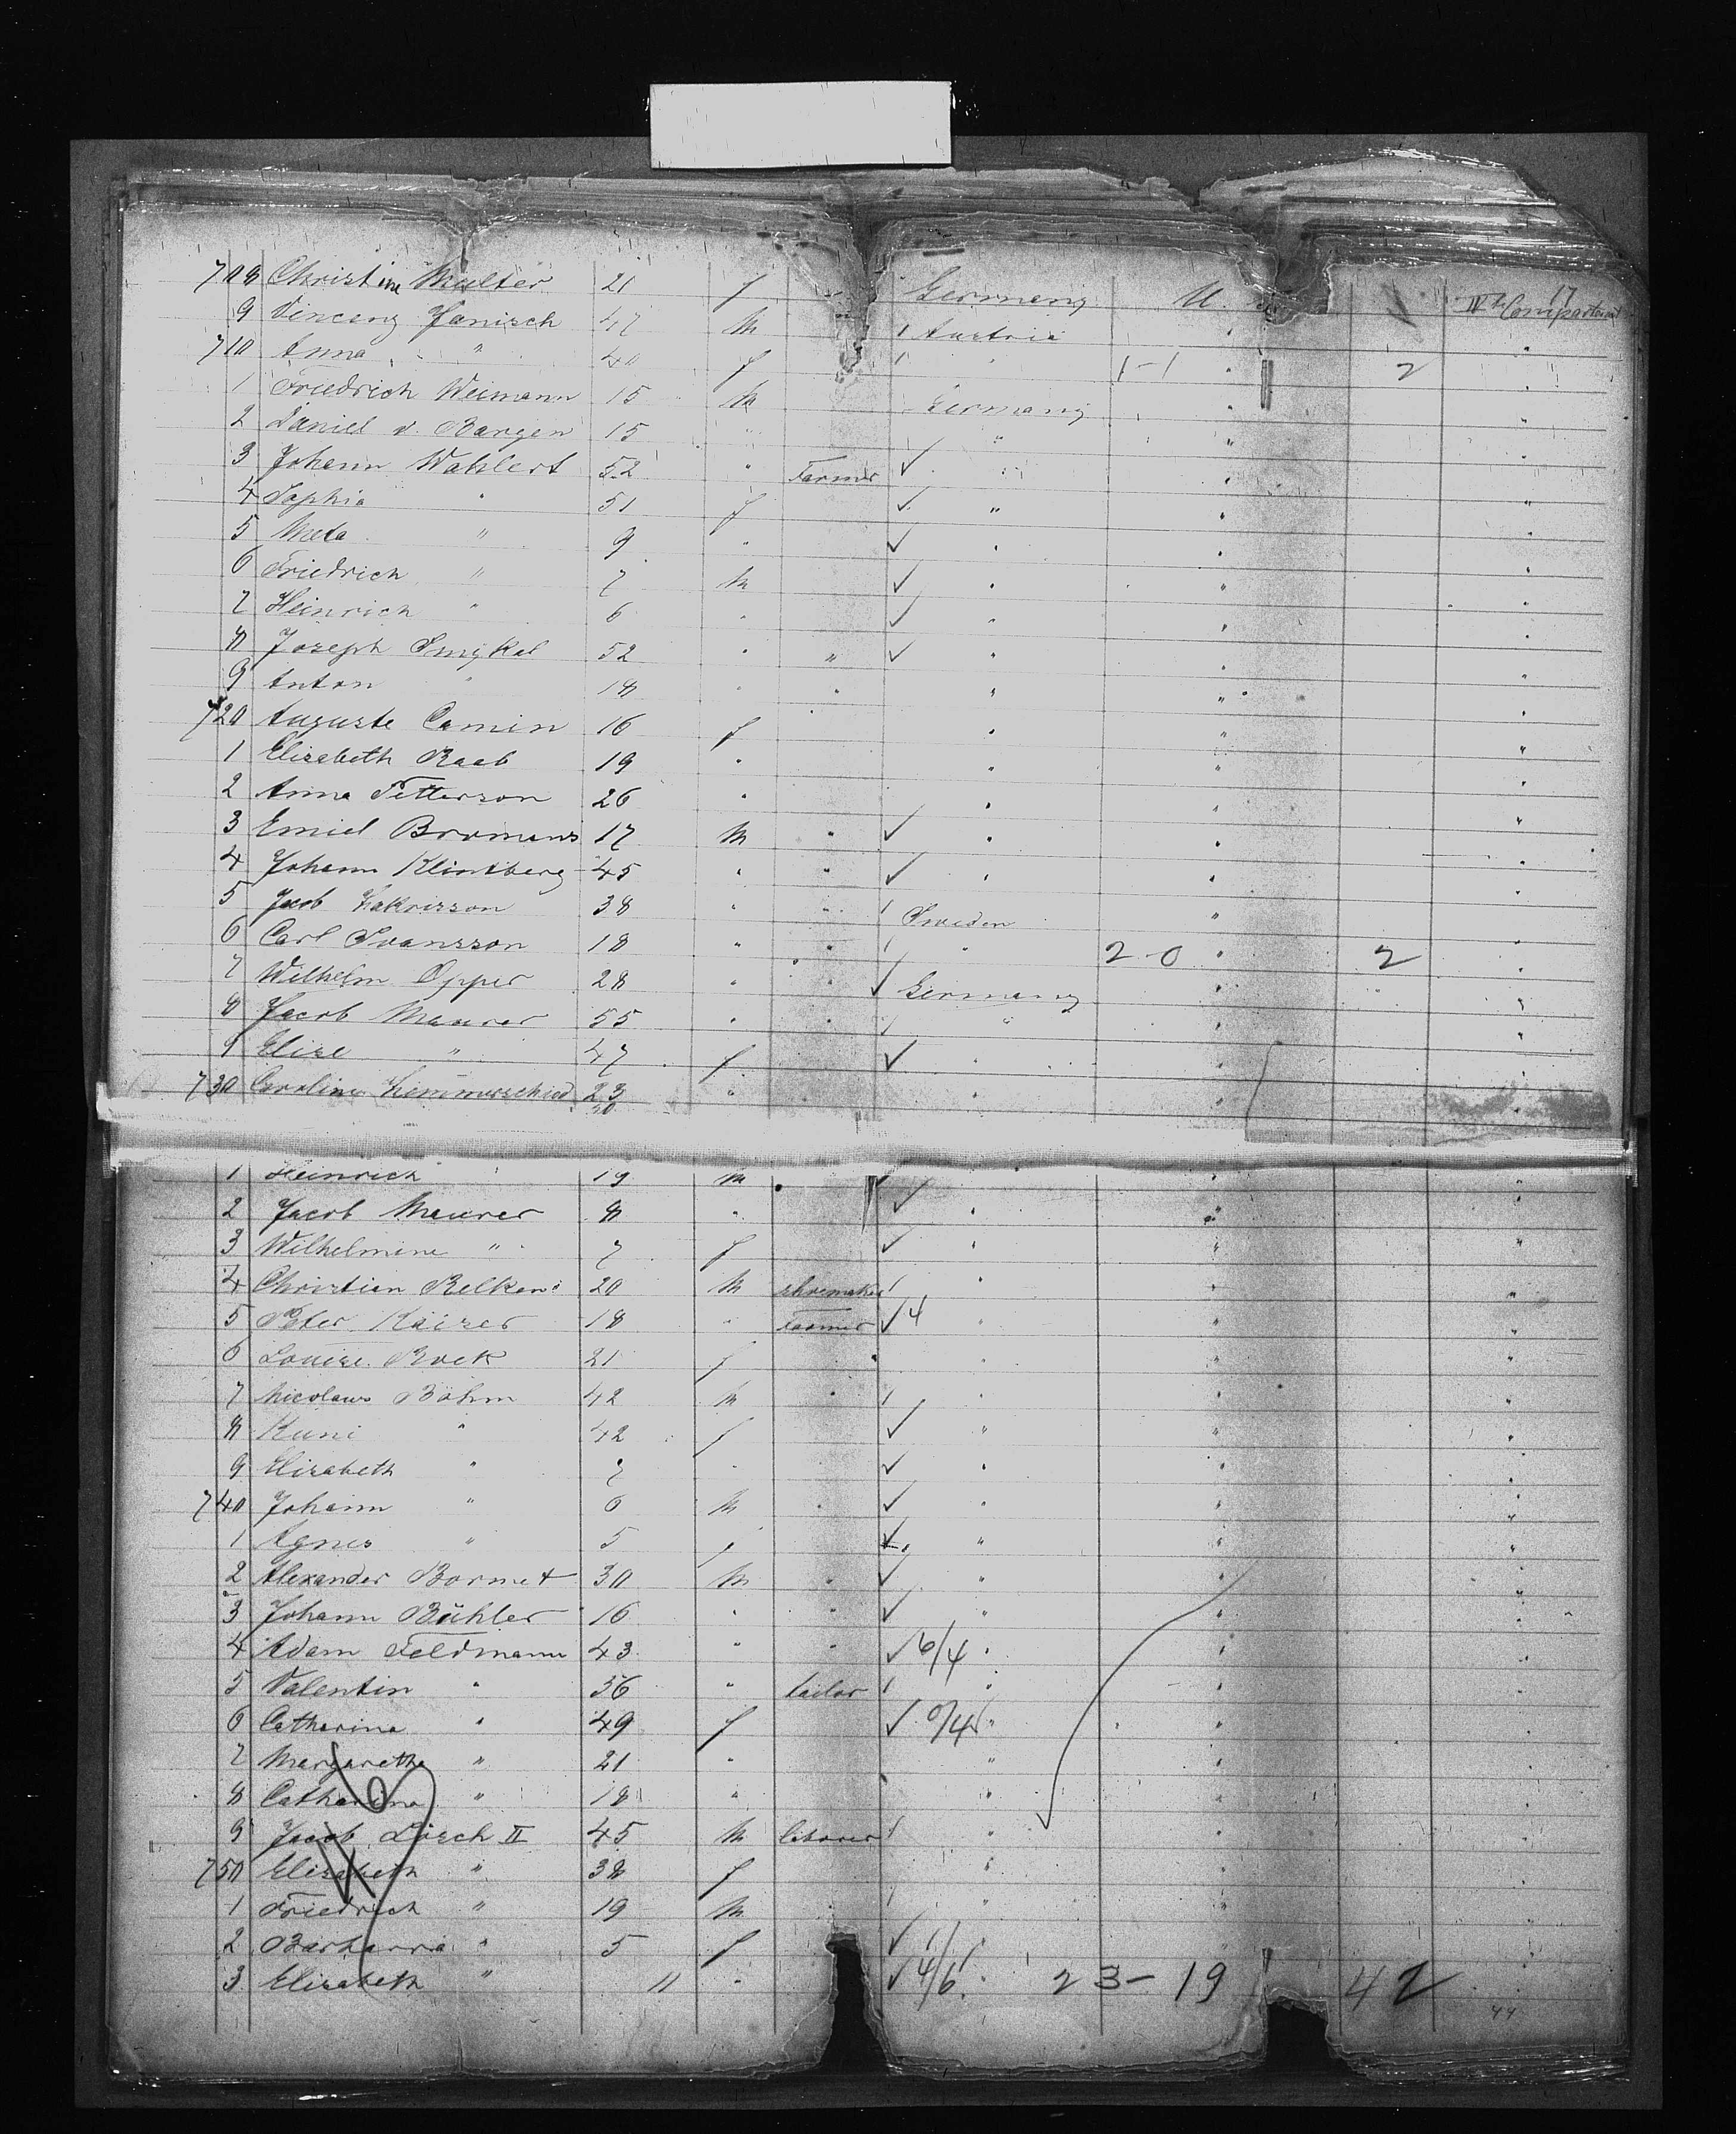 17
708 Christine Multer 21 f Germany U. IVth Compartment
9 Vincenz Janisch 47 M Austria "
710 Anna " 40 f " 1-1 " 2 "
1 Friedrich Weimann 15 M Germany " "
2 Daniel v. Bargen 15 " " " "
3 Johann Wahlert 52 " Farmer ✓ " " "
4 Sophia " 51 f ✓ " " "
5 Meta " 9 " ✓ " " "
6 Friedrich " 7 M ✓ " " "
7 Heinrich " 6 " ✓ " " "
8 Joseph Smykal 52 " " ✓ " " "
9 Anton " 18 " " " " "
720 Auguste Camin 16 f " " "
1 Elisabeth Raab 19 " " " "
2 Anna Petterson 26 " " " "
3 Emiel Bromans 17 M " ✓ " " "
4 Johann Klintberg 45 " " ✓ " " "
5 Jacob Zakrisson 38 " " Sweden " "
6 Carl Svansson 18 " " " 2-0 " 2 "
7 Wilhelm Opper 28 " " ✓ Germany " "
8 Jacob Maurer 55 " " " " "
9 Elise " 47 f ✓ " " "
730 Caroline 23 " " " "
1 Heinrich " 19 M " " "
2 Jacob Maurer 8 " ✓ " " "
3 Wilhelmine " 7 f ✓ " " "
4 Christian 20 M shoemaker " " "
5 Peter Kaiser 18 " Farmer ✓ 4 " " "
6 Louise Bock 21 f " " "
7 Nicolaus Böhm 42 M " " " "
8 Kuni " 42 f ✓ " " "
9 Elisabeth " 7 " ✓ " " "
740 Johann " 6 M ✓ " " "
1 Agnes " 5 f ✓ " " "
2 Alexander Bormet 30 M " ✓ " " "
3 Johann Bühler 16 " " ✓ " " "
4 Adam Feldmann 43 " " ✓ 6/4 " " "
5 Valentin " 36 " tailor " " "
6 Catharina " 49 f ✓ 0/4 " " "
7 Margaretha " 21 " " " "
8 Catharina " 18 " " " "
9 Jacob Lösch II 45 M laborer " " "
750 Elisabeth " 38 f " " "
1 Friedrich " 19 M " " "
2 Barbarra " 5 f ✓ " " "
3 Elisabeth " 11 " ✓ 4/6 " 23-19 42
44